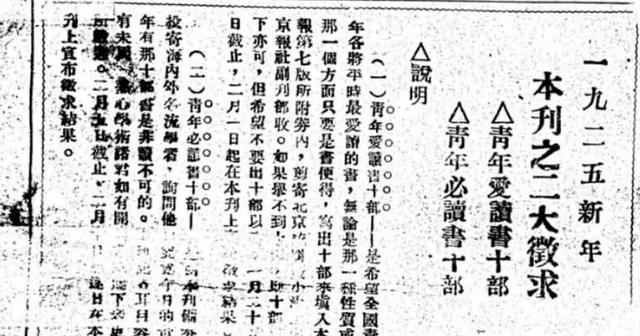 一九二五新年
本刊之二大徵求
△靑年愛讀書十部
△靑年必讀書十部
△說明
（一）靑年愛讀書十部——是希望全國靑
年各將平時最愛讀的書，無論是那一種性質或
那一個方面只要是書便得，寫出十部來塡入本
報第七版所附券內，剪寄北京
京報社副刊部收。如果舉不到十部
下亦可，但希望不要出十部以 一月二十
日截止，二月一日起在本刊上 徵求結果
（二）靑年必讀書十部——
投寄海內外名流學者，詢問他
年有那十部書是非讀不可的。
有未周，熱心學術諸君如有開
二月五日截止，二月
刊上宣布徵求結果。